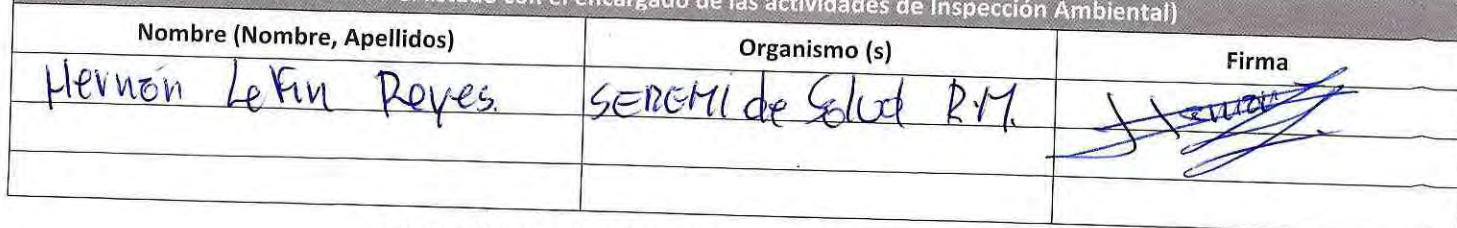 listado con el encargado de las actividades de Inspección Ambiental)
Nombre (Nombre, Apellidos) Organismo (s) Firma
Hernán Reyes. SEREMI de Salud R.M.